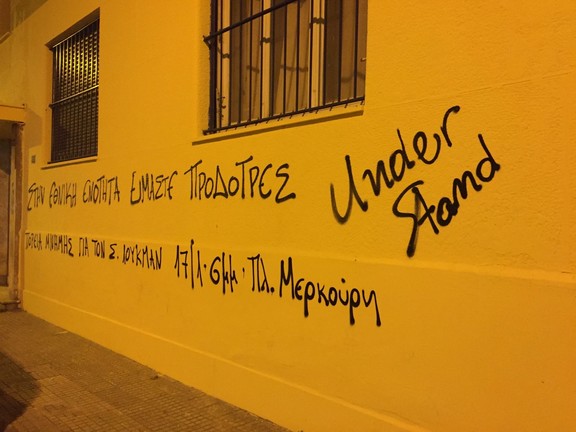 ΣΤΗΝ ΕΘΝΙΚΗ ΕΝΟΤΗΤΑ ΕΙΜΑΣΤΕ ΠΡΟΔΟΤΡΕΣ
ΠΟΡΕΙΑ ΜΝΗΜΗΣ ΓΙΑ ΤΟΝ Σ. ΛΟΥΚΜΑΝ 17/1·6μμ·Πλ. Μερκούρη
Under
Stand